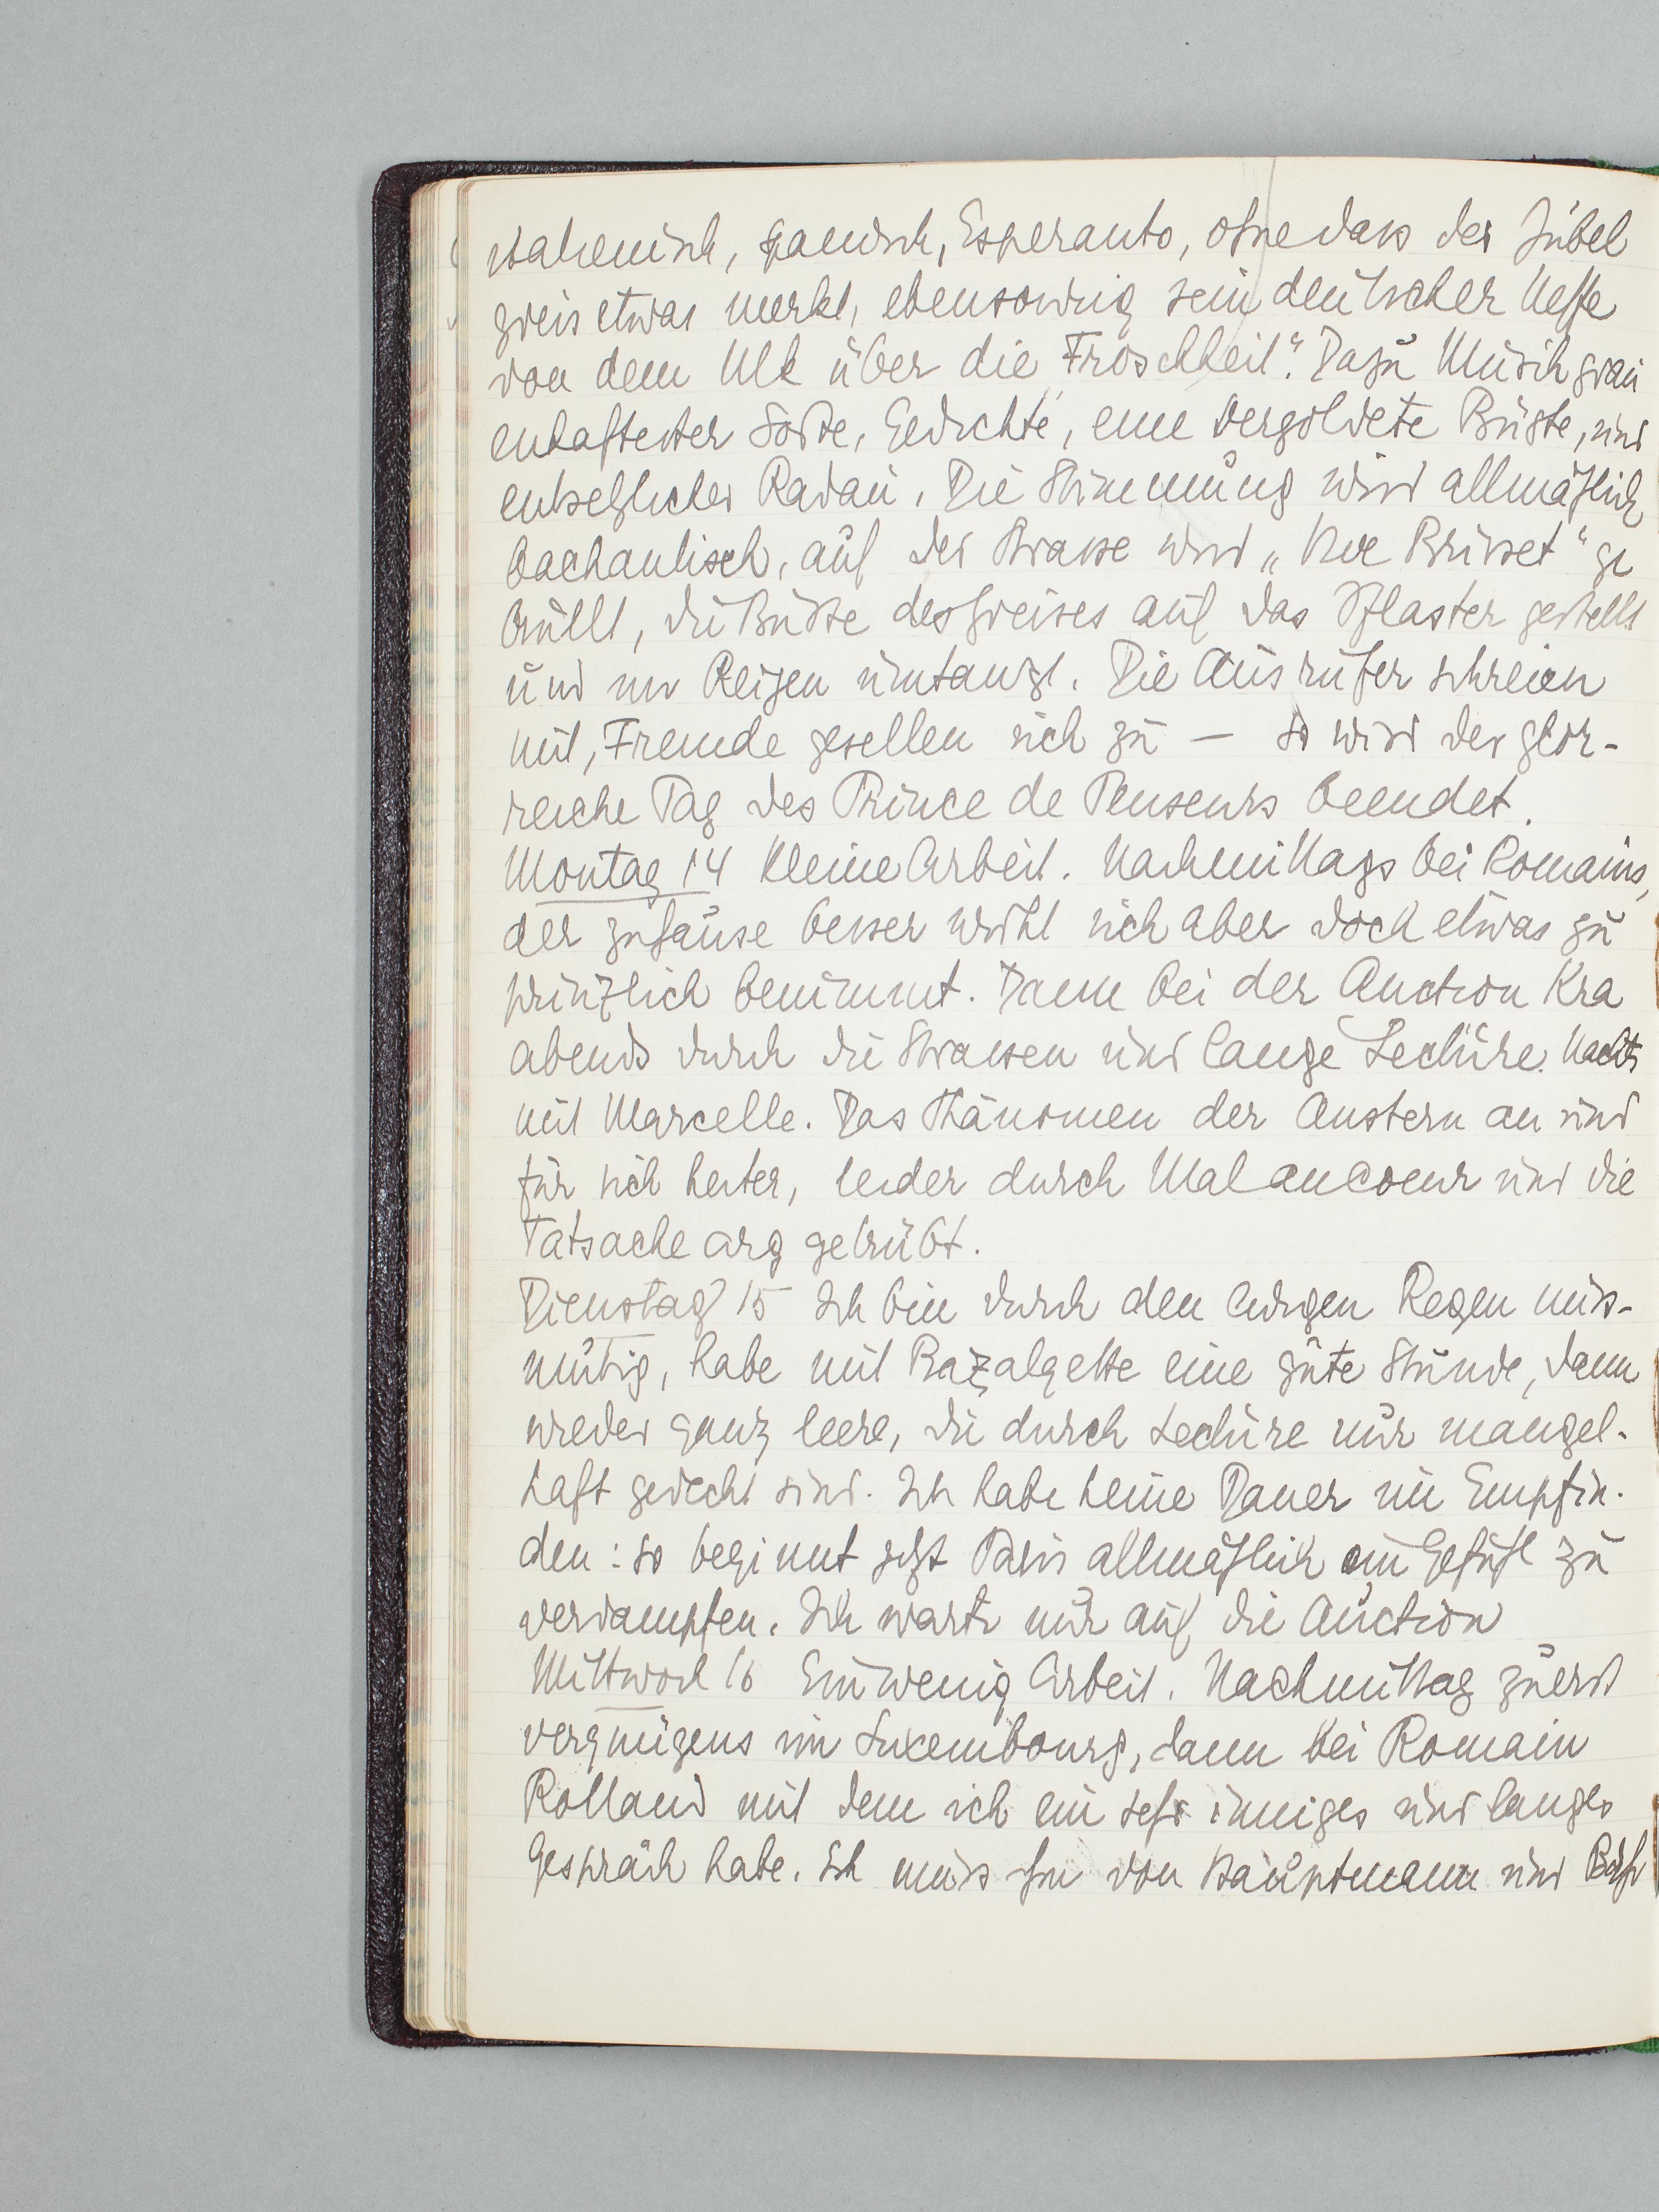 italienisch, spanisch, Esperanto, ohne dass der Jubel
greis etwas merkt, ebensowenig sein deutscher Neffe
von dem Ulk über die Froschheit“. Dazu Musik grau
enhaftester Sorte, Gedichte, eine vergoldete Büste, und
entsetzlicher Radau. Die Stimmung wird allmählich
bachantisch, auf der Strasse wird „Vive Brisset“ ge
brüllt, die Büste des Greises auf das Pflaster gestellt
und im Reigen umtanzt. Die Ausrufer schreien
mit, Fremde gesellen sich zu — so wird der glor-
reiche Tag des Prince de Penseurs beendet.
Montag 14 Kleine Arbeit. Nachmittags bei Romains,
der zuhause besser wohl sich aber doch etwas zu
prinzlich benimmt. Dann bei der Auction Kra
abends durch die Strassen und lange Lectüre. Nachts
mit Marcelle. Das Phänomen der Austern an und
für sich heiter, leider durch Mal au coeur und die
Tatsache arg getrübt.
Dienstag 15 Ich bin durch den ewigen Regen miss-
mutig, habe mit Bazalgette eine gute Stunde, dann
wieder ganz leere, die durch Lectüre nur mangel-
haft gedeckt sind. Ich habe keine Dauer im Empfin-
den: so beginnt jetzt Paris allmählich im Gefühl zu
verdampfen. Ich warte nur auf die Auction
Mittwoch 16 Ein wenig Arbeit. Nachmittag zuerst
vergnügens im Luxembourg, dann bei Romain
Rolland mit dem ich ein sehr inniges und langes
Gespräch habe. Ich muss ihm von Hauptmann und